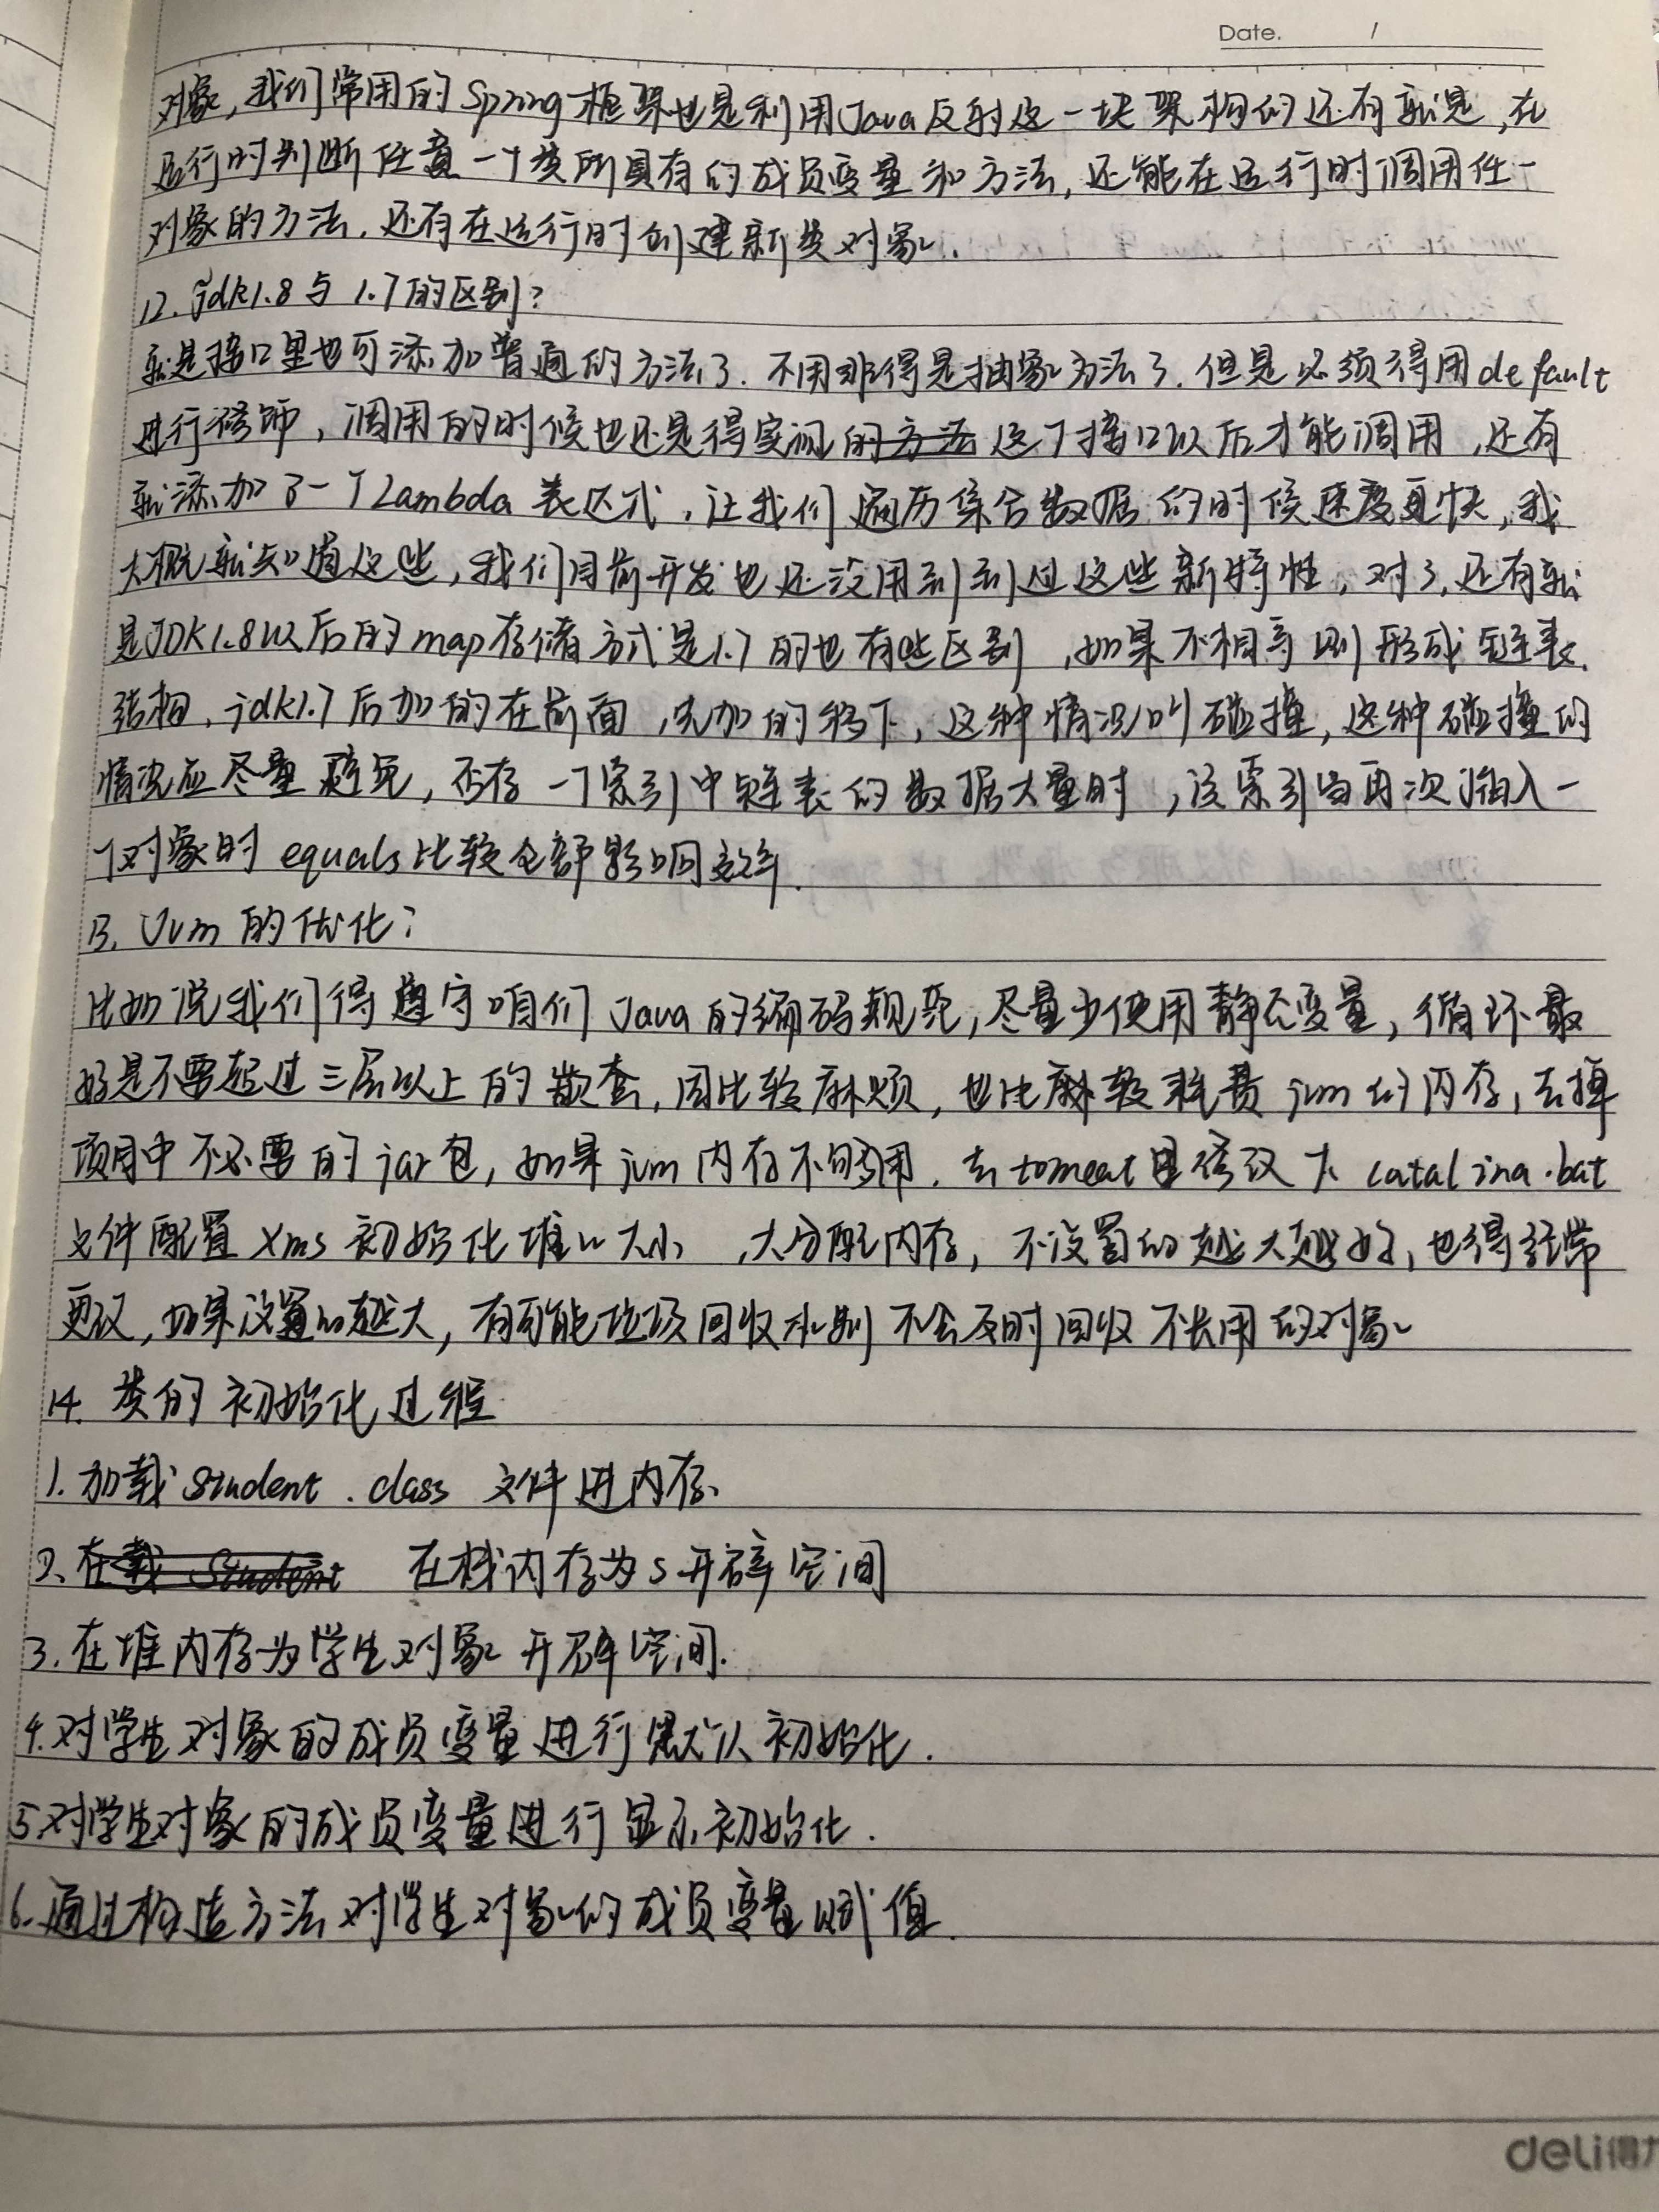 Date. /
对象,我们常用的Spring框架也是利用Java反射这一块架构的还有就是,在
运行时判断任意一个类所具有的成员变量和方法,还能在运行时调用任一
对象的方法,还有在运行时创建新类对象.
12. jdk1.8与1.7的区别?
就是接口里也可添加普通的方法了.不用非得是抽象方法了.但是必须得用default
进行修饰,调用的时候也还是得实现这个接口以后才能调用,还有
就添加了一个Lambda表达式,让我们遍历集合数据的时候速度更快,我
大概就知道这些,我们目前开发也还没用到到过这些新特性,对了,还有就
是JDK1.8以后的map存储方式是1.7的也有些区别,如果不相等则形成链表.
结构,jdk1.7后加的在前面,先加的移下,这种情况叫碰撞,这种碰撞的
情况应尽量避免,否存一个索引中链表的数据大量时,该索引当再次插入一
个对象的equals比较全部影响效率.
13. Jvm的优化?
比如说我们得遵守咱们Java的编码规范,尽量少使用静态变量,循环最
好是不要超过三层以上的嵌套,因比较麻烦,也比较耗费jvm的内存,去掉
项目中不必要的jar包,如果jvm内存不够用.去tomcat里修改下catalina.bat
文件配置Xms初始化堆大小,大分配内存,不设置的越大越好,也得经常
更改,如果设置的越大,有可能垃圾回收机制不会及时回收不长用的对象
14. 类的初始化过程
1.加载Student.class 文件进内存.
2.在栈内存为s开辟空间
3.在堆内存为学生对象开辟空间.
4.对学生对象的成员变量进行默认初始化.
5.对学生对象的成员变量进行显示初始化.
6.通过构造方法对学生对象的成员变量赋值.
deli得力